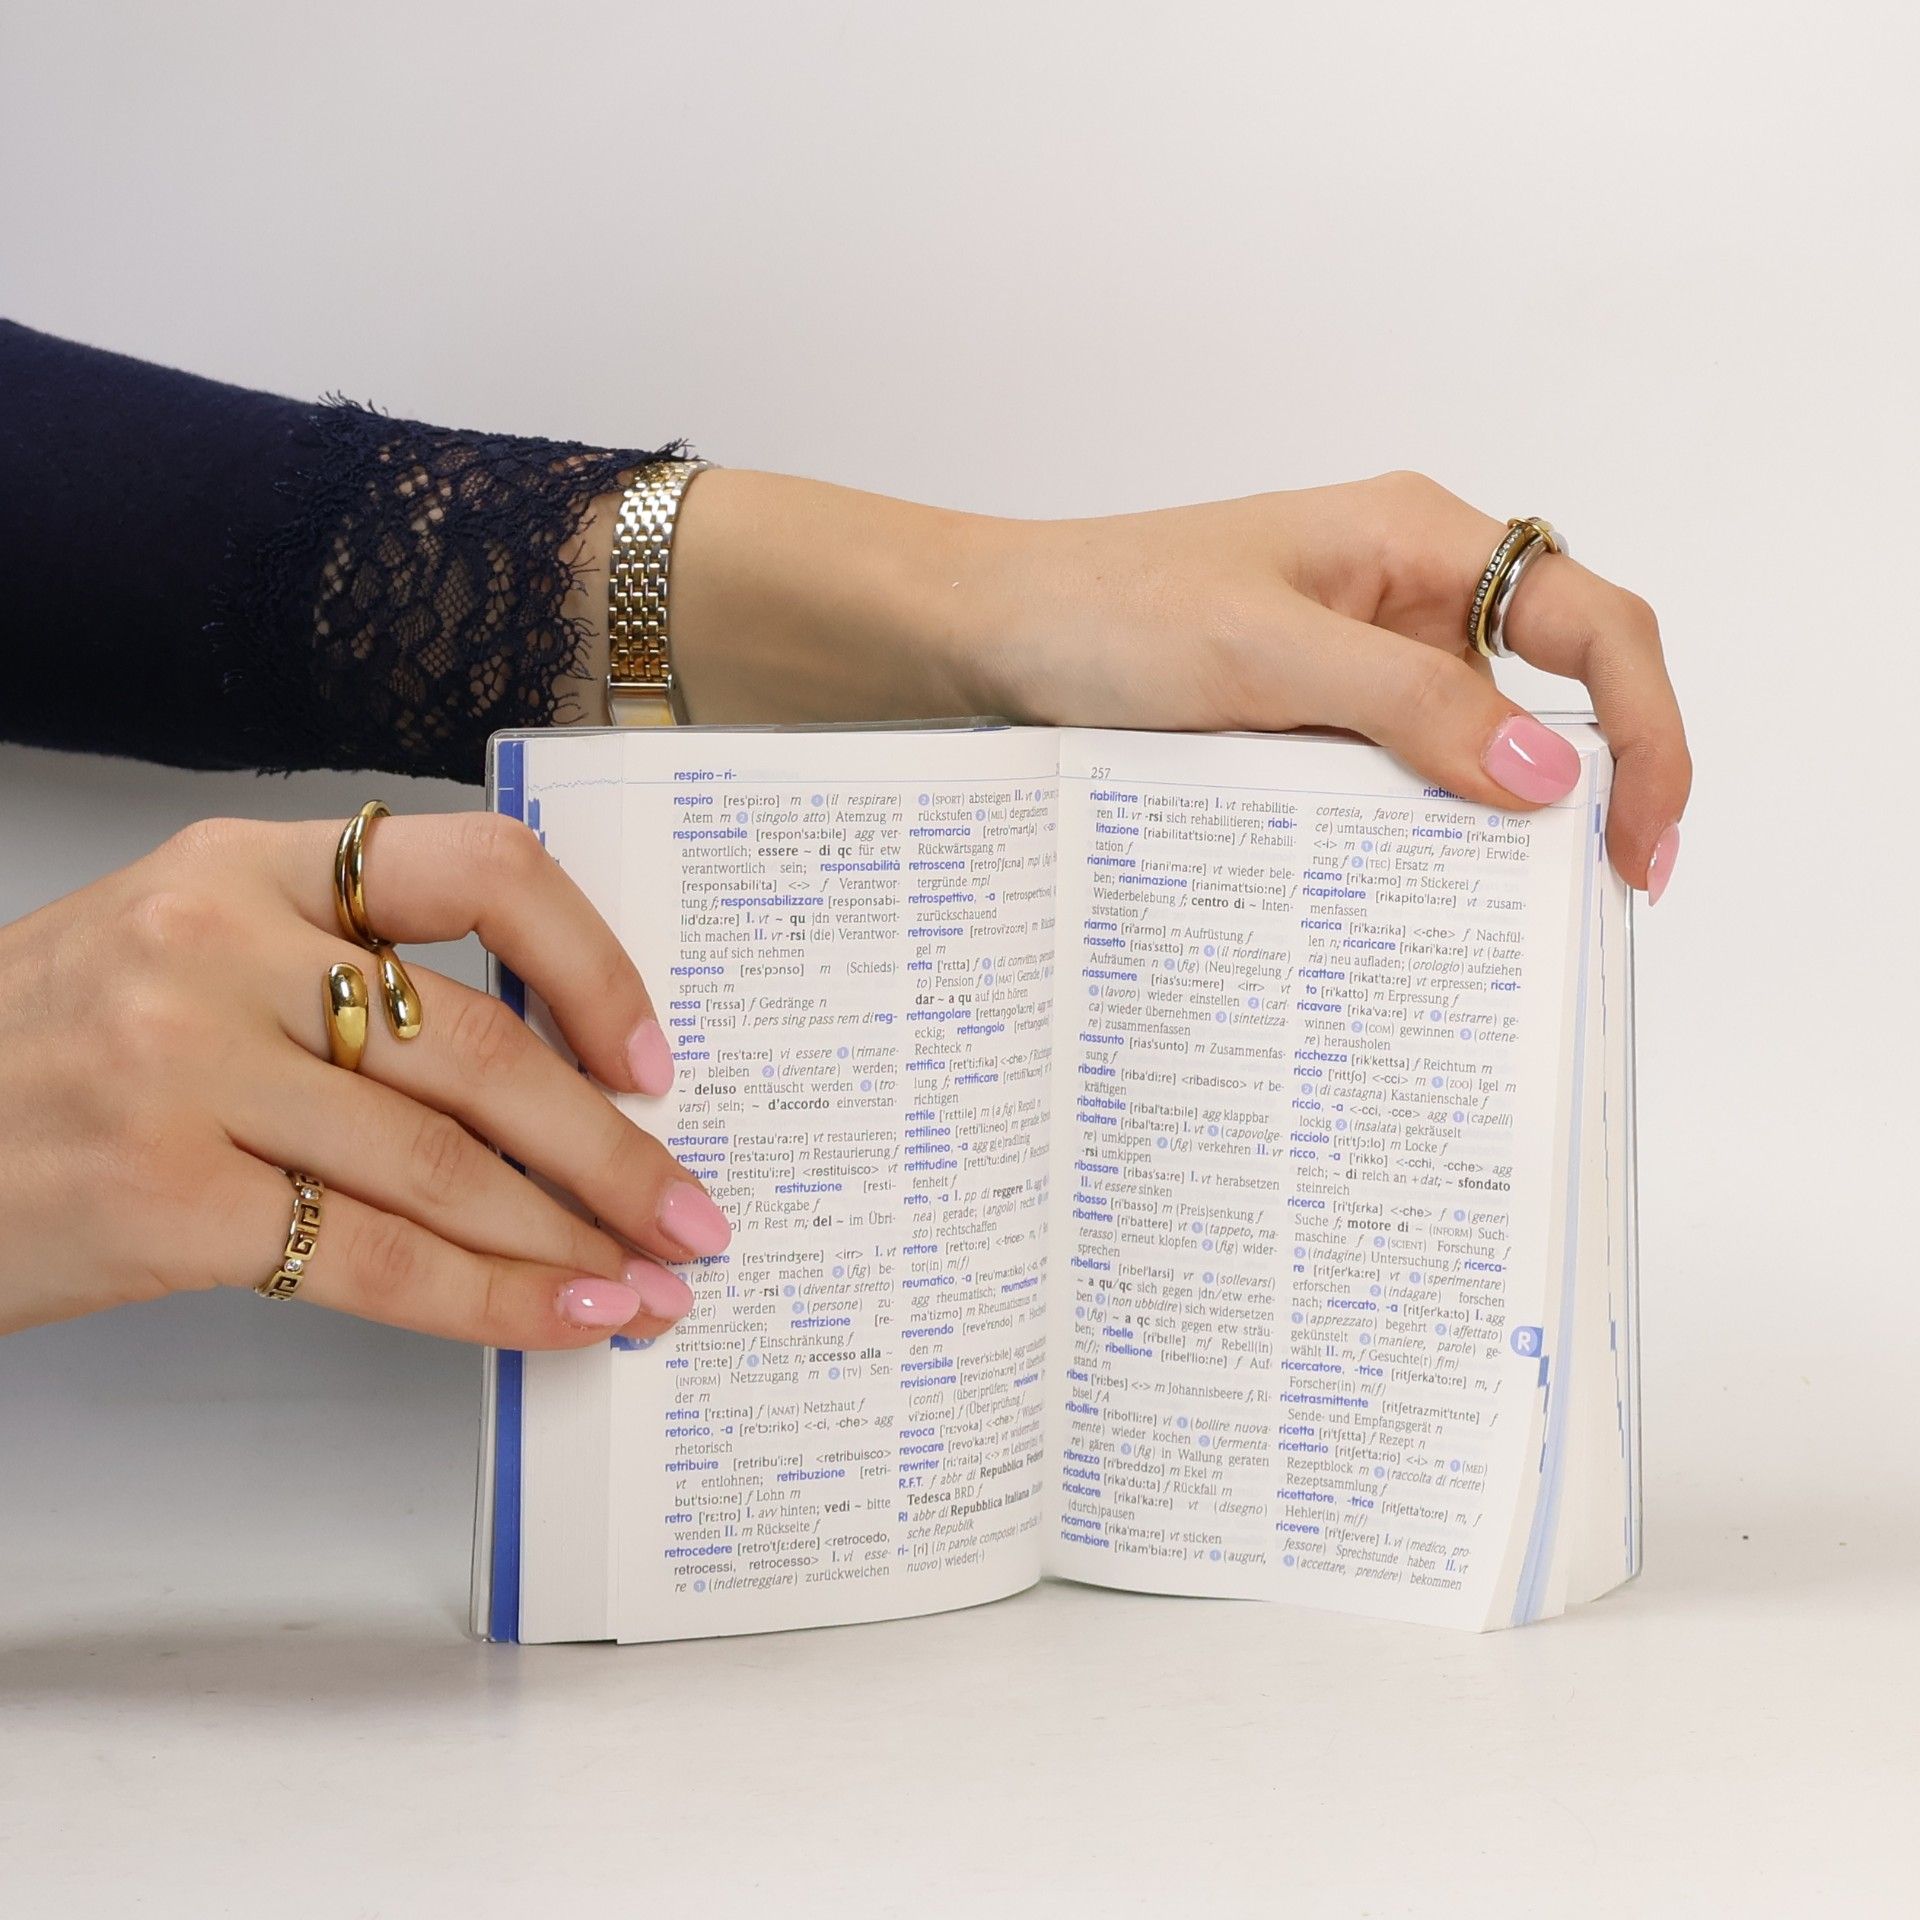 respiro – ri-
respiro [res'pi:ro] m ❶ (il respirare)
Atem m ❷ (singolo atto) Atemzug m
responsabile [respon'sa:bile] agg ver-
antwortlich; essere ~ di qc für etw
verantwortlich sein; responsabilità
[responsabili'ta] <-> f Verantwor-
tung f; responsabilizzare [responsabi-
lid'dza:re] I. vt ~ qu jdn verantwort-
lich machen II. vr -rsi (die) Verantwor-
tung auf sich nehmen
responso [res'pɔnso] m (Schieds)-
spruch m
ressa ['rɛssa] f Gedränge n
ressi ['rɛssi] 1. pers sing pass rem di reg-
gere
estare [res'ta:re] vi essere ❶ (rimane-
re) bleiben ❷ (diventare) werden;
~ deluso enttäuscht werden ❸ (tro-
varsi) sein; ~ d'accordo einverstan-
den sein
restaurare [restau'ra:re] vt restaurieren;
restauro [res'ta:uro] m Restaurierung f
tuire [restitu'i:re] <restituisco> vt
kgeben; restituzione [resti-
ne] f Rückgabe f
o] m Rest m; del ~ im Übri-
ngere [res'trindʒere] <irr> I. vt
(abito) enger machen ❷ (fig) be-
nzen II. vr -rsi ❶ (diventar stretto)
g(er) werden ❷ (persone) zu-
sammenrücken; restrizione [re-
strit'tsio:ne] f Einschränkung f
rete ['re:te] f ❶ Netz n; accesso alla ~
(INFORM) Netzzugang m ❷ (TV) Sen-
der m
retina ['rɛ:tina] f (ANAT) Netzhaut f
retorico, -a [re'tɔ:riko] <-ci, -che> agg
rhetorisch
retribuire [retribu'i:re] <retribuisco>
vt entlohnen; retribuzione [retri-
but'tsio:ne] f Lohn m
retro ['rɛ:tro] I. avv hinten; vedi ~ bitte
wenden II. m Rückseite f
retrocedere [retro'tʃɛ:dere] <retrocedo,
retrocessi, retrocesso> I. vi esse-
re ❶ (indietreggiare) zurückweichen
❷ (SPORT) absteigen II. vt ❶
rückstufen ❷ (MIL) degradieren
retromarcia [retro'martʃa]
Rückwärtsgang m
retroscena [retroʃ'ʃɛ:na] mpl (fig)
tergründe mpl
retrospettivo, -a [retrospet'ti:vo]
zurückschauend
retrovisore [retrovi'zo:re] m
gel m
retta ['rɛtta] f ❶ (di convitto,
to) Pension f ❷ (MAT) Gerade f
dar ~ a qu auf jdn hören
rettangolare [rettaŋgo'la:re] agg
eckig; rettangolo
Rechteck n
rettifica [ret'ti:fika] <-che> f
lung f; rettificare [rettifi'ka:re]
richtigen
rettile ['rɛttile] m (a fig) Reptil n
rettilineo [retti'li:neo] m gerade
rettilineo, -a agg g(e)radlinig
rettitudine [retti'tu:dine] f
fenheit f
retto, -a I. pp di reggere II. agg
nea) gerade; (angolo) recht
sto) rechtschaffen
rettore [ret'to:re] <-trice>
tor(in) m(f)
reumatico, -a [reu'ma:tiko]
agg rheumatisch; reumatismo
ma'tizmo] m Rheumatismus m
reverendo [reve'rɛndo] m
den m
reversibile [rever'si:bile] agg
revisionare [revizio'na:re] vt
(conti) (über)prüfen; revisione
vi'zio:ne] f (Über)prüfung f
revoca ['rɛ:voka] <-che> f
revocare [revo'ka:re] vt widerrufen
rewriter [ri:'raita] <-> m
R.F.T. f abbr di Repubblica
Tedesca BRD f
RI abbr di Repubblica Italiana
sche Republik
ri- [ri] (in parole composte) zurück
nuovo) wieder(-)
257
riabilitare [riabili'ta:re] I. vt rehabilitie-
ren II. vr -rsi sich rehabilitieren; riabi-
litazione [riabilitat'tsio:ne] f Rehabili-
tation f
rianimare [riani'ma:re] vt wieder bele-
ben; rianimazione [rianimat'tsio:ne] f
Wiederbelebung f; centro di ~ Inten-
sivstation f
riarmo [ri'armo] m Aufrüstung f
riassetto [rias'sɛtto] m ❶ (il riordinare)
Aufräumen n ❷ (fig) (Neu)regelung f
riassumere [rias'su:mere] <irr> vt
❶ (lavoro) wieder einstellen ❷ (cari-
ca) wieder übernehmen ❸ (sintetizza-
re) zusammenfassen
riassunto [rias'sunto] m Zusammenfas-
sung f
ribadire [riba'di:re] <ribadisco> vt be-
kräftigen
ribaltabile [ribal'ta:bile] agg klappbar
ribaltare [ribal'ta:re] I. vt ❶ (capovolge-
re) umkippen ❷ (fig) verkehren II. vr
-rsi umkippen
ribassare [ribas'sa:re] I. vt herabsetzen
II. vi essere sinken
ribasso [ri'basso] m (Preis)senkung f
ribattere [ri'battere] vt ❶ (tappeto, ma-
terasso) erneut klopfen ❷ (fig) wider-
sprechen
ribellarsi [ribel'larsi] vr ❶ (sollevarsi)
~ a qu/qc sich gegen jdn/etw erhe-
ben ❷ (non ubbidire) sich widersetzen
❸ (fig) ~ a qc sich gegen etw sträu-
ben; ribelle [ri'bɛlle] mf Rebell(in)
m(f); ribellione [ribel'lio:ne] f Auf-
stand m
ribes ['ri:bes] <-> m Johannisbeere f, Ri-
bisel f A
ribollire [ribol'li:re] vi ❶ (bollire nuova-
mente) wieder kochen ❷ (fermenta-
re) gären ❸ (fig) in Wallung geraten
ribrezzo [ri'breddzo] m Ekel m
ricaduta [rika'du:ta] f Rückfall m
ricalcare [rikal'ka:re] vt (disegno)
(durch)pausen
ricamare [rika'ma:re] vt sticken
ricambiare [rikam'bia:re] vt ❶ (auguri,
cortesia, favore) erwidern ❷ (mer-
ce) umtauschen; ricambio [ri'kambio]
<-i> m ❶ (di auguri, favore) Erwide-
rung f ❷ (TEC) Ersatz m
ricamo [ri'ka:mo] m Stickerei f
ricapitolare [rikapito'la:re] vt zusam-
menfassen
ricarica [ri'ka:rika] <-che> f Nachfül-
len n; ricaricare [rikari'ka:re] vt (batte-
ria) neu aufladen; (orologio) aufziehen
ricattare [rikat'ta:re] vt erpressen; ricat-
to [ri'katto] m Erpressung f
ricavare [rika'va:re] vt ❶ (estrarre) ge-
winnen ❷ (COM) gewinnen ❸ (ottene-
re) herausholen
ricchezza [rik'kettsa] f Reichtum m
riccio ['rittʃo] <-cci> m ❶ (ZOO) Igel m
❷ (di castagna) Kastanienschale f
riccio, -a <-cci, -cce> agg ❶ (capelli)
lockig ❷ (insalata) gekräuselt
ricciolo ['rittʃo:lo] m Locke f
ricco, -a ['rikko] <-cchi, -cche> agg
reich; ~ di reich an +dat; ~ sfondato
steinreich
ricerca [ri'tʃerka] <-che> f ❶ (gener)
Suche f; motore di ~ (INFORM) Such-
maschine f ❷ (SCIENT) Forschung f
❸ (indagine) Untersuchung f; ricerca-
re [ritʃer'ka:re] vt ❶ (sperimentare)
erforschen ❷ (indagare) forschen
nach; ricercato, -a [ritʃer'ka:to] I. agg
❶ (apprezzato) begehrt ❷ (affettato)
gekünstelt ❸ (maniere, parole) ge-
wählt II. m, f Gesuchte(r) f(m)
ricercatore, -trice [ritʃerka'to:re] m, f
Forscher(in) m(f)
ricetrasmittente [ritʃetrazmit'tɛnte] f
Sende- und Empfangsgerät n
ricetta [ri'tʃɛtta] f Rezept n
ricettario [ritʃet'ta:rio] <-i> m ❶ (MED)
Rezeptblock m ❷ (raccolta di ricette)
Rezeptsammlung f
ricettatore, -trice [ritʃetta'to:re] m, f
Hehler(in) m(f)
ricevere [ri'tʃe:vere] I. vi (medico, pro-
fessore) Sprechstunde haben II. vt
❶ (accettare, prendere) bekommen
R